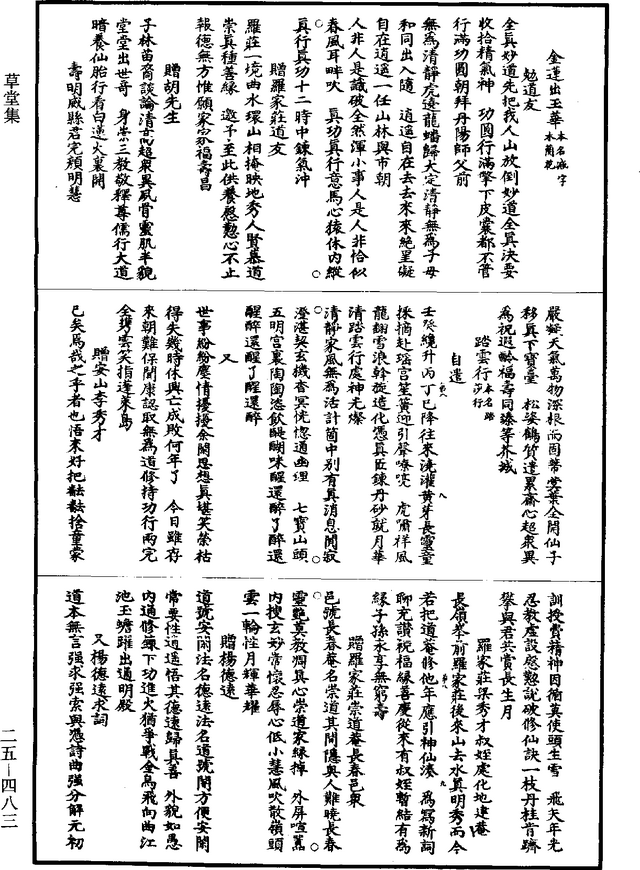 金蓮出玉華 本名減字木蘭花
勉道友
全真妙道先把我人山放倒妙道全真決要
收拾精氣神 功圓行滿擎下皮囊都不管
行滿功圓朝拜丹陽師父前
無為清靜虎遶龍蟠歸大定清靜無為子母
和同出入隨 逍遙自在去去來來絕罣礙
自在逍遙一任山林與市朝
人非人是識破全然渾小事人是人非恰似
春風耳畔吹 真功真行意馬心猿休內縱
真行真功十二時中鍊氣沖
贈羅家莊道友
羅莊一境曲水環山相掩映地秀人賢慕道
崇真種善緣 邀予至此供養慇懃心不止
報德無方惟願家家福壽昌
贈胡先生
子林苗裔談論清高超衆異夙骨靈肌半貌
堂堂出世奇 身崇三教敬釋尊儒行大道
暗養仙胎行看白蓮火裏開
壽明威縣君完顏明慧
嚴凝天氣萬物深根而固蔕蓂葉全開仙子
移真下寶臺 松姿鶴質遣累齋心超衆異
為祝遐齡福壽同臻等芥城
踏雲行 本名踏莎行
自遣
壬癸纔升丙丁已降往來澆灌黄芽長靈童
採摘赴瑶宮笙簧迎引聲嘹喨 虎嘯祥風
龍翻雪浪斡旋造化憑真匠鍊丹砂就月華
清踏雲行處神光燦
清靜家風無為活計箇中別有真消息閑寂
澄湛契玄機杳冥恍惚通幽理 七寶山頭
五明宮裏陶陶恣飲醍醐味醒還醉了醉還
醒醉還醒了醒還醉
又
世事紛紛塵情擾擾余閑思想真堪笑榮枯
得失幾時休興亡成敗何年了 今日雖存
來朝難保聞康認取無為道修持功行兩完
全携雲笑指蓬萊島
贈安山李秀才
已矣焉哉之乎者也悟來好把㪇㪇捨童蒙
訓授費精神因循莫使頭生雪 飛矢年光
忍教虛設慇懃說破修仙訣一枝丹桂肯躋
攀與君共賞長生月
羅家莊渠秀才叔姪處化地建菴
長嶺峯前羅家莊後來山去水真明秀而今
若把道菴修他年應引神仙湊 為寫新詞
聊充讚祝福緣善慶從來有叔姪暫結有為
緣子孫永享無窮壽
贈羅家莊崇道菴長春邑衆
邑號長春菴名崇道其間隱奥人難曉長春
靈艶莫教凋真心崇道家緣掉 外屏喧囂
內搜玄妙常懷忍辱心低小慧風吹散嶺頭
雲一輪性月輝華耀
贈楊德遠
道號安閑法名德遠法名道號閑方便安閑
常要性逍遙悟其德遠歸真善 外貌如愚
內通修鍊下功進火猶爭戰金烏飛向曲江
池玉蟾躍出通明殿
又楊德遠求詞
道本無言强求强索與憑詩曲强分解元初
草堂集
二五—四八三